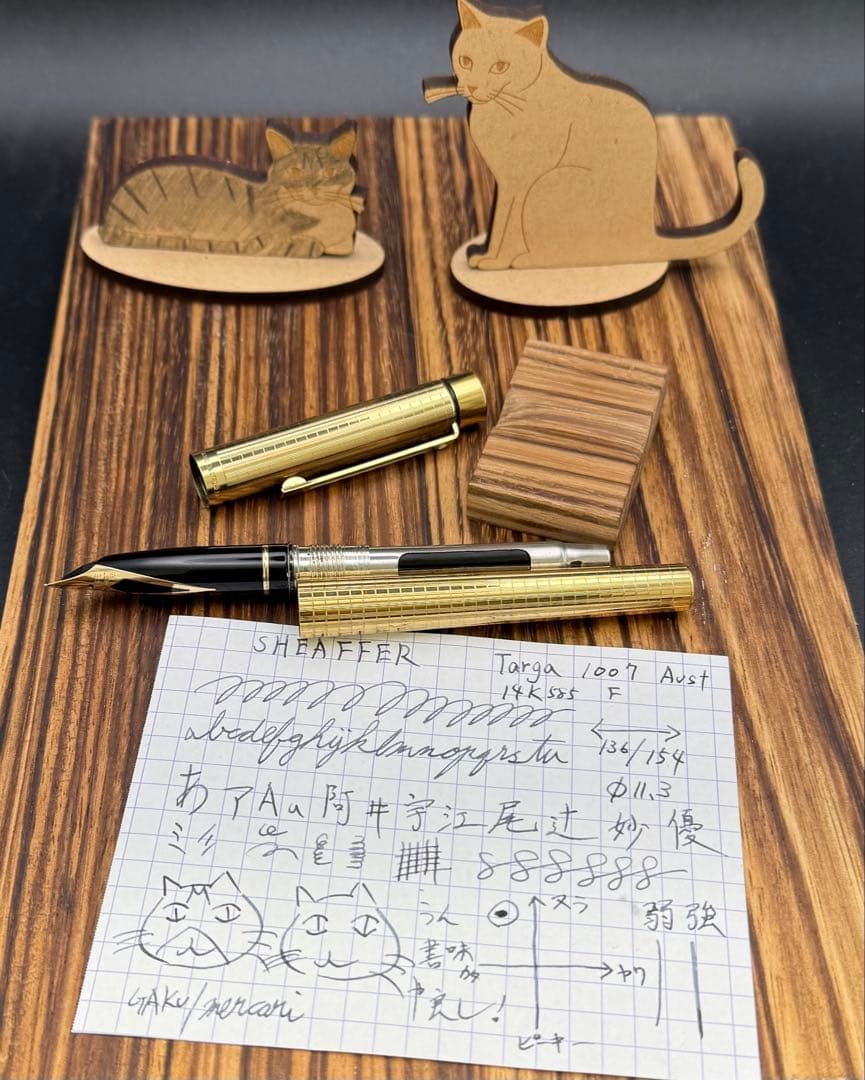 SHEAFFER
Targa 1007 Aust
14K 585 F
abcdefghijklmnopqrstu
136/154
φ11.3
あアAa阿井宇江尾辻妙優
ヌラ
弱強
うん
書味
ヤワ
良し!
ピーキー
GAKU/mercari